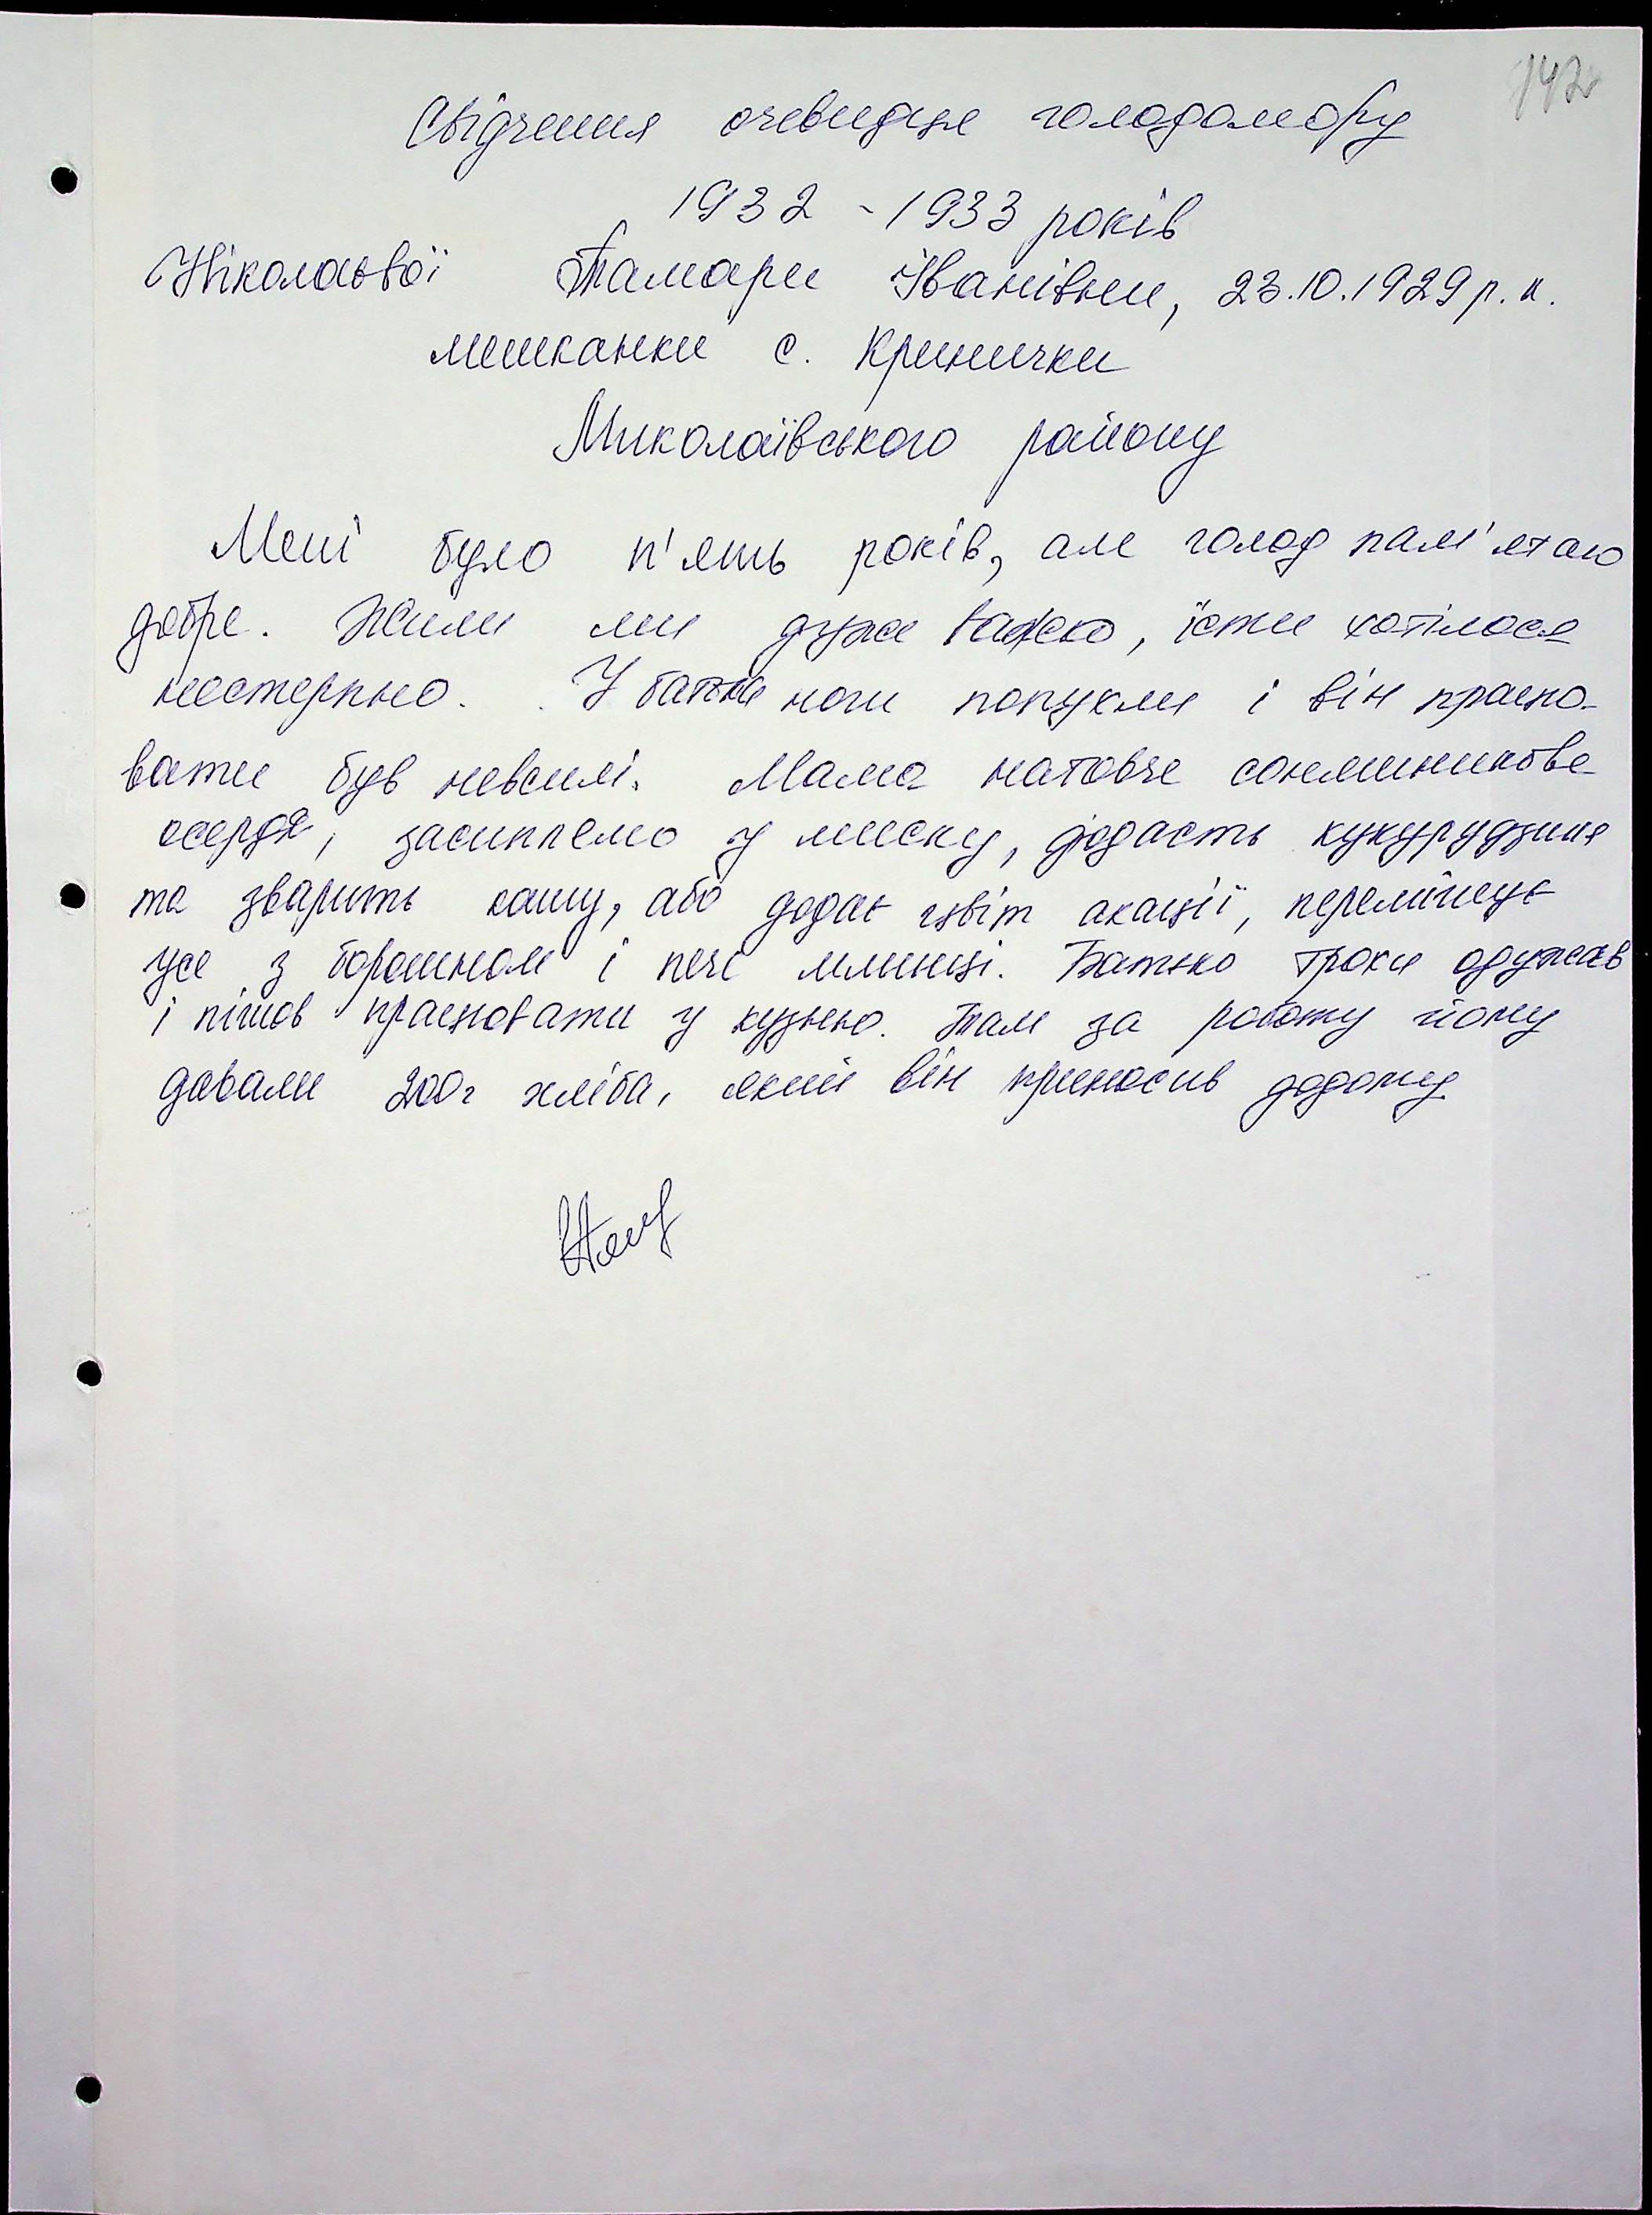 142
Свідчення очевидця голодомору
1932 - 1933 років
Ніколаєвої Тамари Іванівни, 23.10.1929 р. н.
мешканки с. Кринички
Миколаївського району
Мені було п'ять років, але голод пам'ятаю
добре. Жили ми дуже важко, їсти хотілося
нестерпно. У батька ноги попухли і він працю-
вати був невсилі. Мама натовче соняшникове
осердя, засиплемо у миску, додасть кукурудзиня
та зварить кашу, або додає цвіт акації, перемішує
усе з борошном і пече млинці. Батько трохи одужав
і пішов працювати у кузню. Там за роботу йому
давали 200г хліба, який він приносив додому.